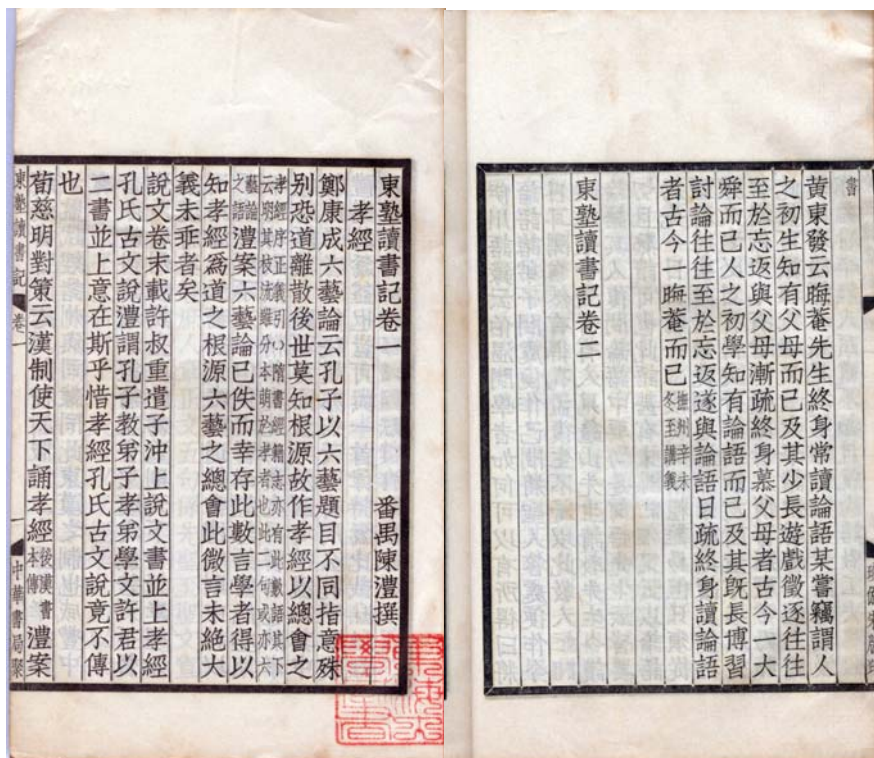 黃東發云晦菴先生終身常讀論語某嘗竊謂人
之初生知有父母而已及其少長遊戲徵逐往往
至於忘返與父母漸疏終身慕父母者古今一大
舜而已人之初學知有論語而已及其旣長博習
討論往往至於忘返遂與論語日疏終身讀論語
者古今一晦菴而已撫州辛未冬至講義
東塾讀書記卷二
東塾讀書記卷一
番禺陳澧撰
孝經
鄭康成六藝論云孔子以六藝題目不同指意殊
別恐道離散後世莫知根源故作孝經以總會之
孝經序正義引○隋書經籍志亦有此數語其下云明其枝流雖分本萌於孝者也此二句或亦六
藝論之語澧案六藝論已佚而幸存此數言學者得以
知孝經爲道之根源六藝之總會此微言未絕大
義未乖者矣
說文卷末載許叔重遣子沖上說文書並上孝經
孔氏古文說澧謂孔子教弟子孝弟學文許君以
二書並上意在斯乎惜孝經孔氏古文說竟不傳
也
荀慈明對策云漢制使天下誦孝經後漢書本傳澧案
東塾讀書記 卷一 一 中華書局聚